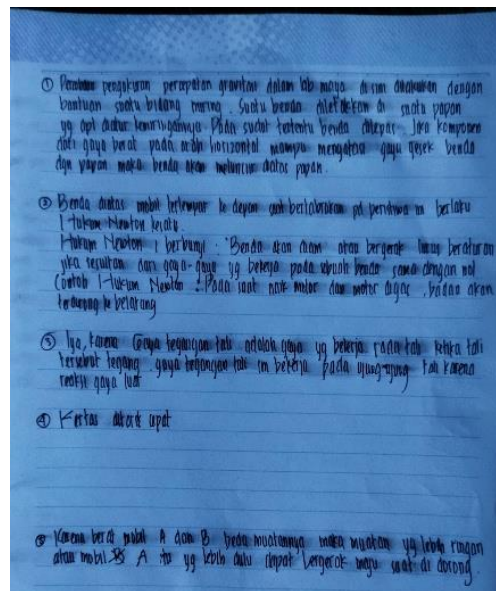 ① pengukuran percepatan gravitasi dalam lab maya disini dilakukan dengan
bantuan suatu bidang miring. Suatu benda diletakkan di suatu papan
yg dpt diatur kemiringannya. Pada sudut tertentu benda dilepas. Jika komponen
dari gaya berat pada arah horizontal mampu mengatasi gaya gesek benda
dgn papan maka benda akan meluncur diatas papan.
② Benda diatas mobil terlempar ke depan saat bertabrakan pd peristiwa ini berlaku
1 Hukum Newton
Hukum Newton 1 berbunyi : "Benda akan diam atau bergerak lurus beraturan
jika resultan dari gaya-gaya yg bekerja pada sebuah benda sama dengan nol
Contoh 1 Hukum Newton : Pada saat naik motor dan motor digas, badan akan
terdorong ke belakang
③ Iya, karena Gaya tegangan tali adalah gaya yg bekerja pada tali ketika tali
tersebut tegang. gaya tegangan tali ini bekerja pada ujung-ujung tali karena
reaksi gaya luar
④ Kertas ditarik cepat
⑤ Karena berat mobil A dan B beda muatannya maka muatan yg lebih ringan
atau mobil A itu yg lebih dulu dapat bergerak maju saat di dorong.